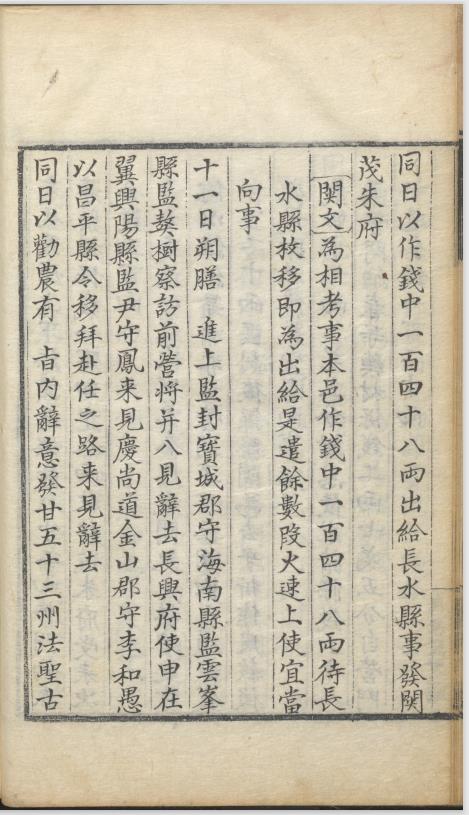 同日以作錢中一百四十八兩出給長水縣事發関
茂朱府
関文為相考事本邑作錢中一百四十八兩待長
水縣枚移即為出給是遣餘數段火速上使宜當
向事
十一日朔膳 進上監封寶城郡守海南縣監雲峯
縣監獒樹察訪前營将并八見辭去長興府使申在
翼興陽縣監尹守鳳来見慶尚道金山郡守李和愚
以昌平縣令移拜赴任之路来見辭去
同日以勸農有 㫖内辭意發甘五十三州法聖古